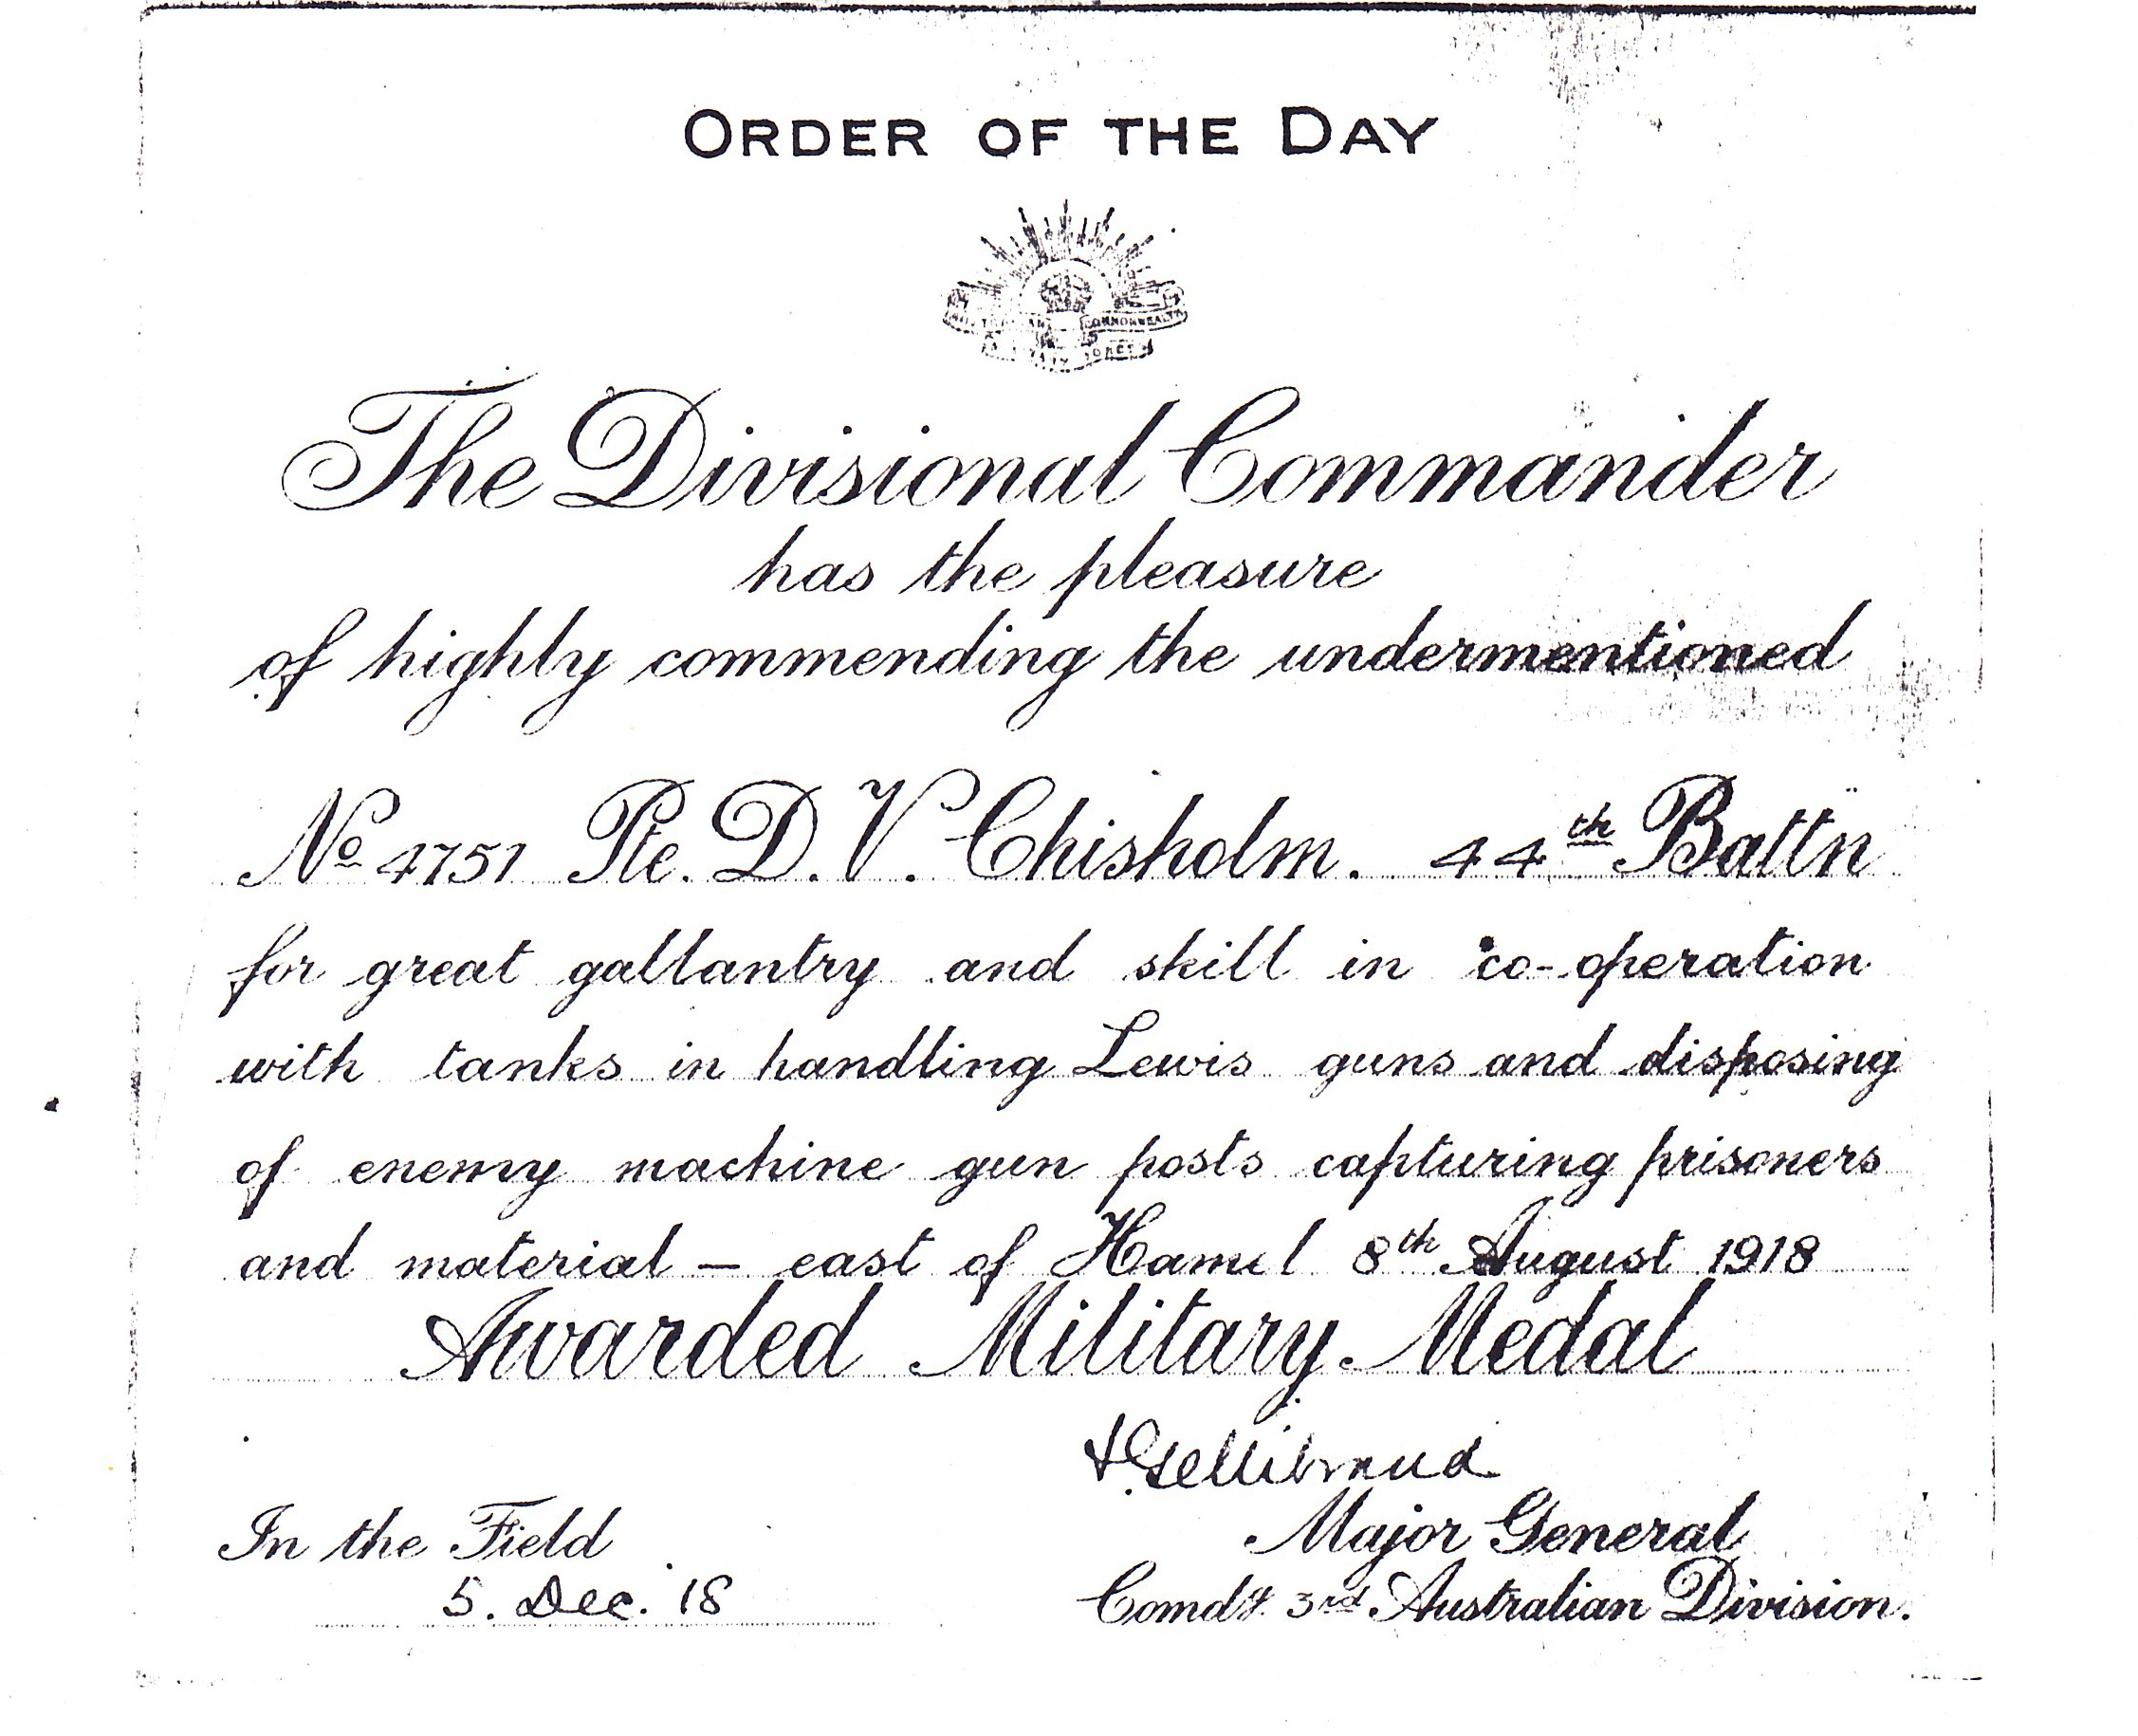 ORDER OF THE DAY
COMMONWEALTH
The Divisional Commander
has the pleasure
of highly commending the undermentioned
No 4751 Pte. D. V. Chisholm. 44th Battn
for great gallantry and skill in co-operation
with tanks in handling Lewis guns and disposing
of enemy machine gun posts capturing prisoners
and material — east of Hamel 8th August 1918
Awarded Military Medal
J Gellibrand
Major General
In the Field
5. Dec. '18
Comdg. 3rd Australian Division.